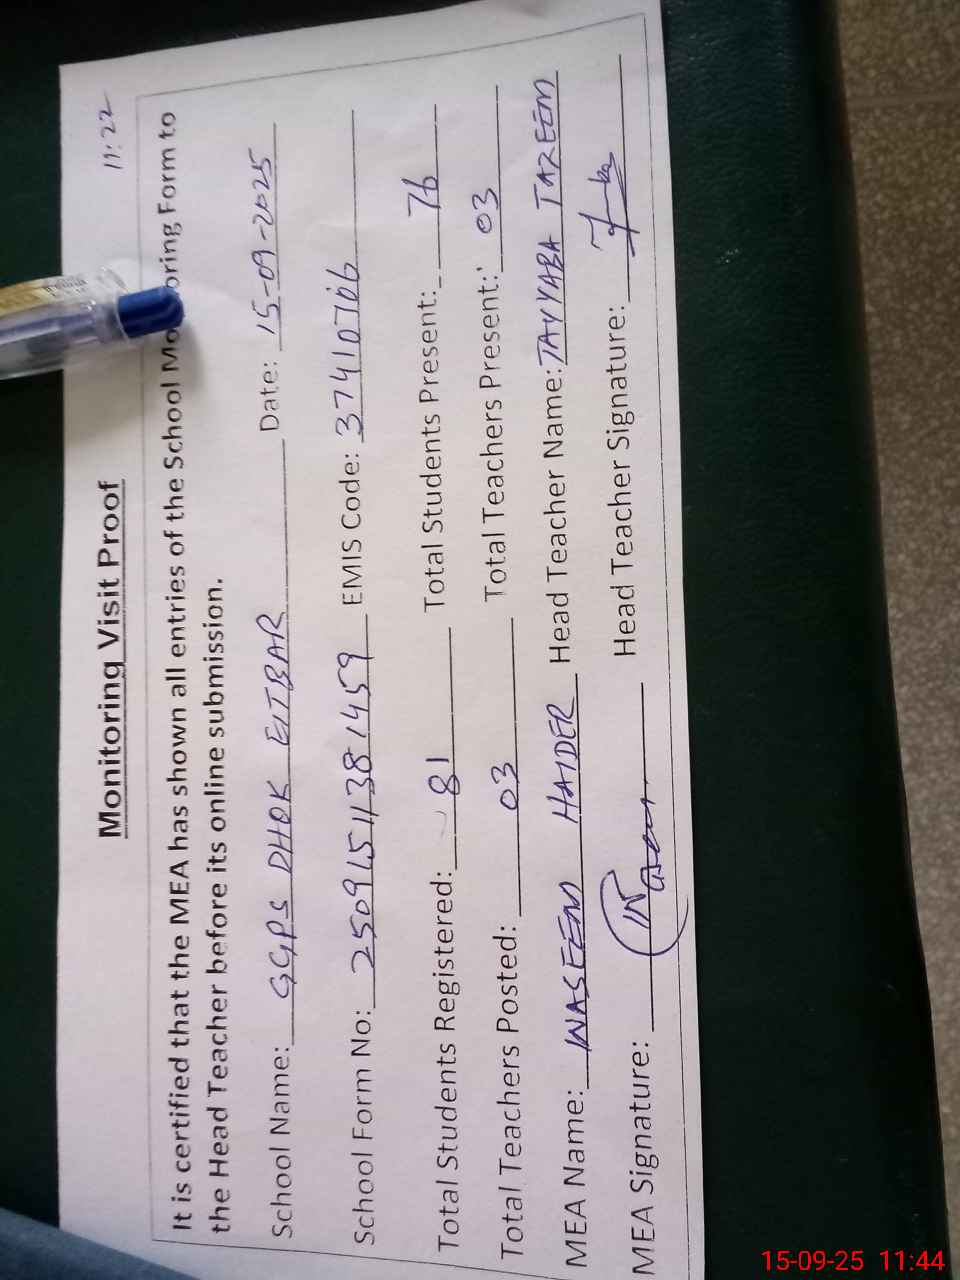 11:22
Monitoring Visit Proof
It is certified that the MEA has shown all entries of the School Mo oring Form to
the Head Teacher before its online submission.
School Name: GGPS DHOK EITBAR Date: 15-09-2025
School Form No: 25091511381459 EMIS Code: 37410766
Total Students Registered: 81 Total Students Present: 76
Total Teachers Posted: 03 Total Teachers Present: 03
MEA Name: WASEEM HAIDER Head Teacher Name: TAYYABA TAZEEM
MEA Signature: Head Teacher Signature:
15-09-25 11:44